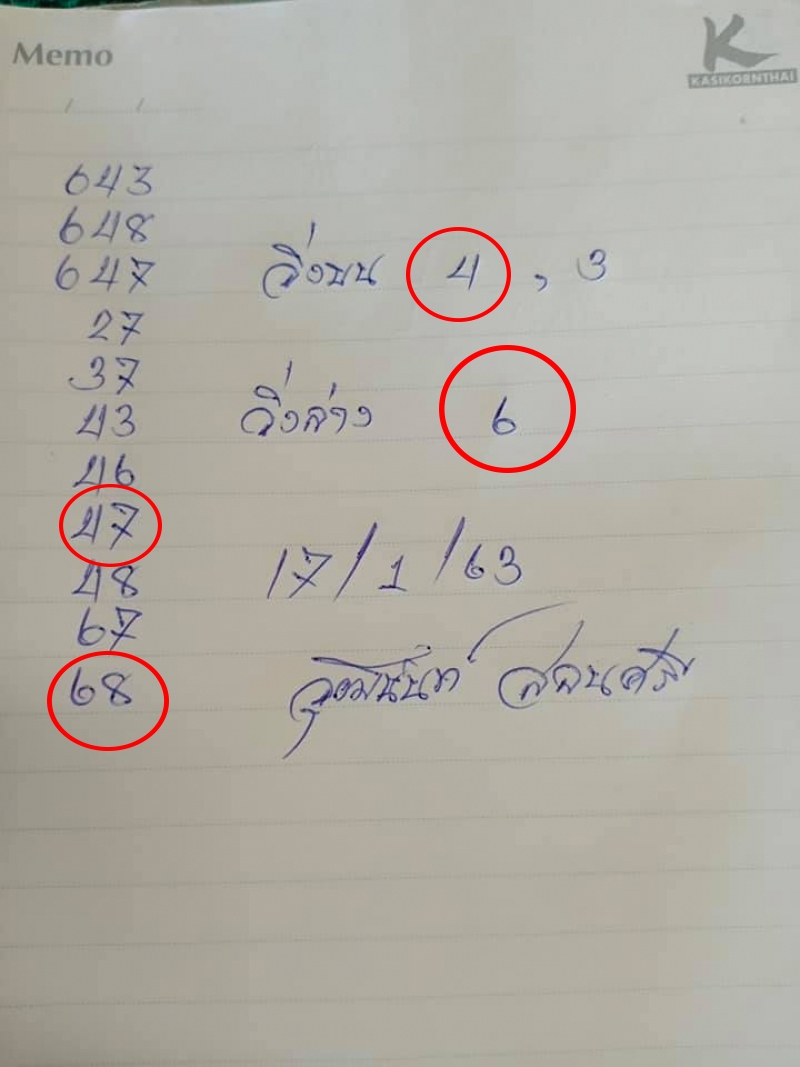 Memo
KASIKORNTHAI
/ /
643
648
647
วิ่งบน 4 , 3
27
37
43
วิ่งล่าง 6
46
47
48
17/1/63
67
68